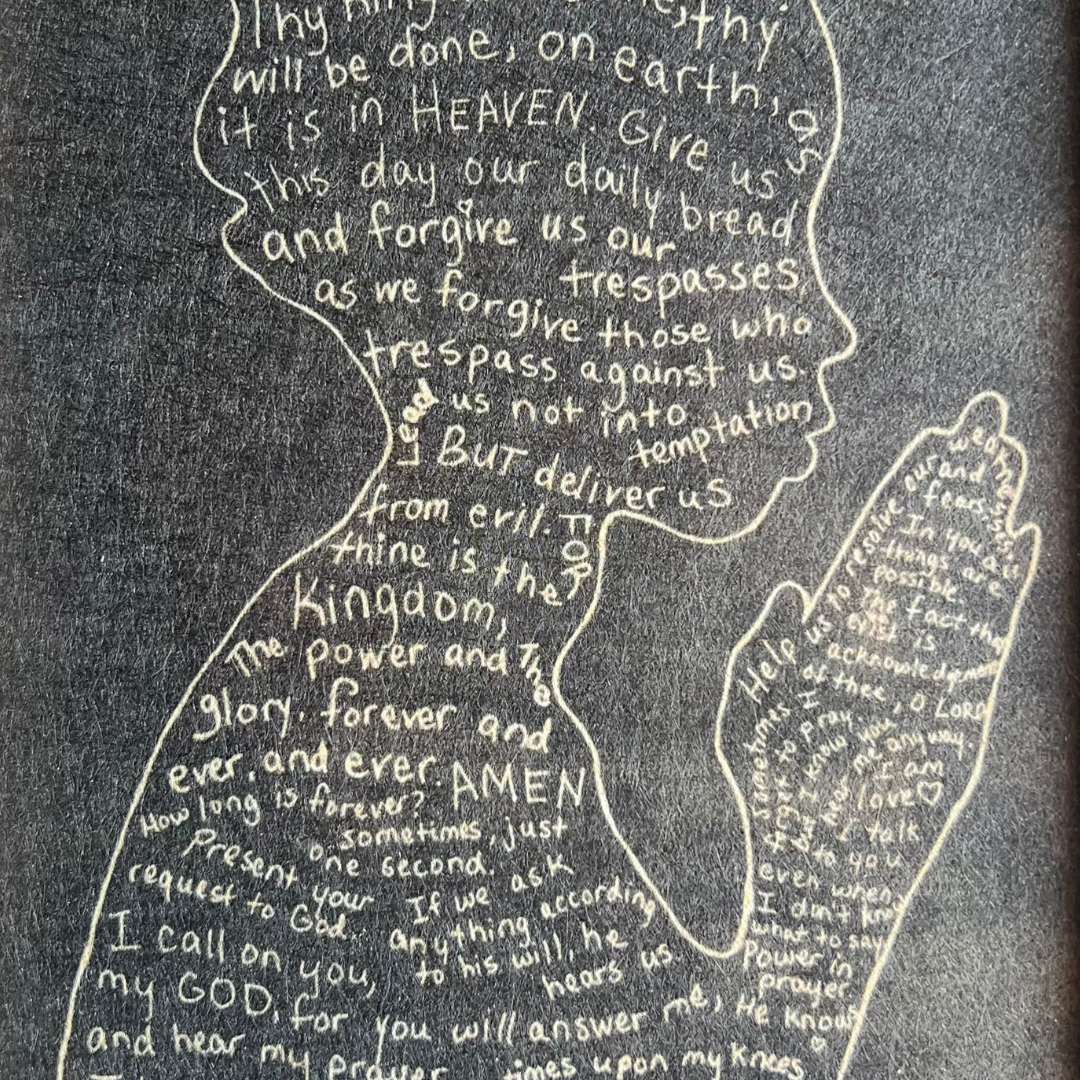 Thy
thy
will be done, on earth, as
it is in HEAVEN. Give us
this day our daily bread
and forgive us our
trespasses
as we forgive those who
trespass against us.
Lead us not into
temptation
But deliver us
from evil. For
thine is the
Kingdom,
The power and The
glory. forever and
ever, and ever. AMEN
How long is forever?
sometimes, just
one second.
Present your
request to God.
If we ask
anything according
to his will, he
hears us
I call on you,
my GOD, for you will answer me, He knows
and hear my prayer
times upon my knees
Help us to resolve our
weaknesses
and
fears.
In you all
things are
possible
The fact that
is
acknowledgment
of thee, O LORD
sometimes I
forget to pray.
but I know you
hear me anyway.
I am
love♡
I talk
to you
even when
I don't know
what to say
Power in
prayer.